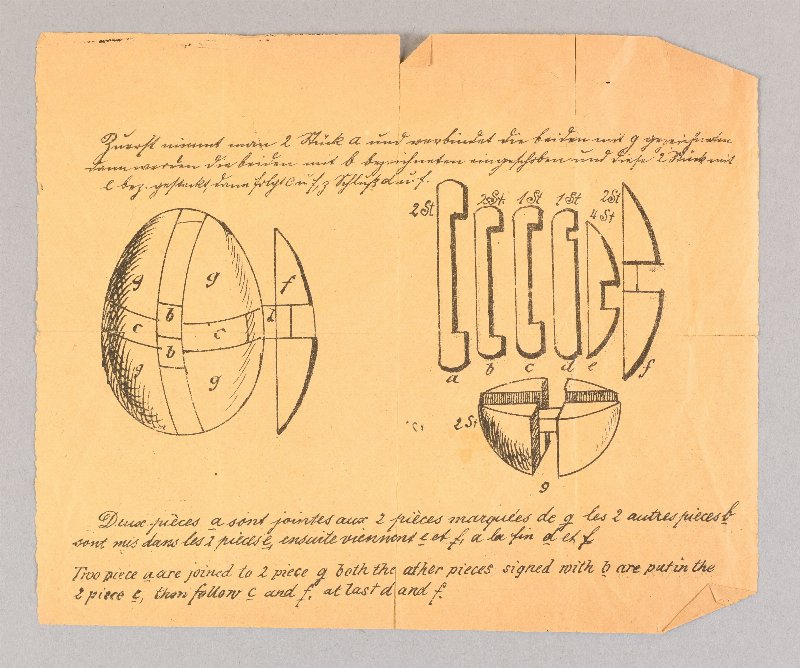 Zuerst nimmt man 2 Stück a und verbindet die beiden mit g gezeichneten
dann werden die beiden mit b bezeichneten eingeschoben und diese 2 Stück mit
e bez. gesteckt, dann folgt c u. f, z Schluß d auf.
2 St
2 St.
1 St
1 St
4 St
2 St
g g f
b d
c c
b
g g
a b c d e f
2 St
g
Deux pièces a sont jointes aux 2 pièces marquées de g les 2 autres pièces b
sont mis dans les 2 pièces e, ensuite viennent c et f, a la fin d et f.
Two piece a are joined to 2 piece g both the other pieces signed with b are put in the
2 piece e, then follow c and f. at last d and f.